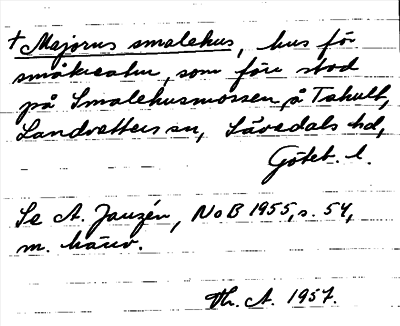 † Majorus smalehus, hus för
småkreatur, som förr stod
på Smalehusmossen, å Tahult,
Landvetters sn, Sävedals hd,
Göteb. l.
Se A. Janzén, NoB 1955, s. 54,
m. hänv.
Th. A. 1957.